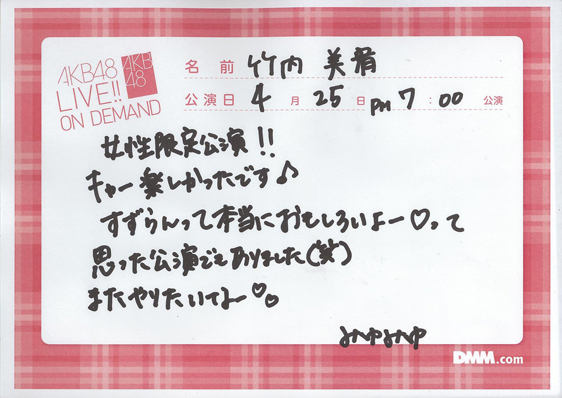 AKB48
LIVE!!
ON DEMAND
AKB
48
名前 竹内 美宥
公演日 4月 25日 PM 7:00 公演
女性限定公演!!
キャー楽しかったです♪
すずらんって本当におもしろいよー♡って
思った公演でもありました(笑)
またやりたいてよー♡♡
みゆみゆ
DMM.com